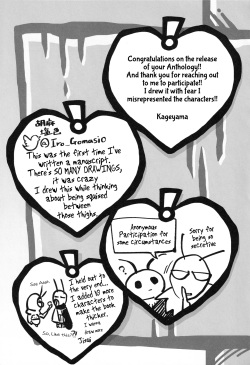 Congratulations on the release
of your Anthology!!
And thank you for reaching out
to me to participate!!
I drew it with fear I
misrepresented the characters!!
Kageyama
@Iro_Gromasic
This was the first time I've
written a manuscript.
There's SO MANY DRAWINGS,
it was crazy
I drew this while thinking
about being squised
between
those thighs.
Anonymous
Participation for
some circumstances
Sorry for
being so
secretive
I held out to
the very end...
I added 10 more
characters to
make the book
thicker.